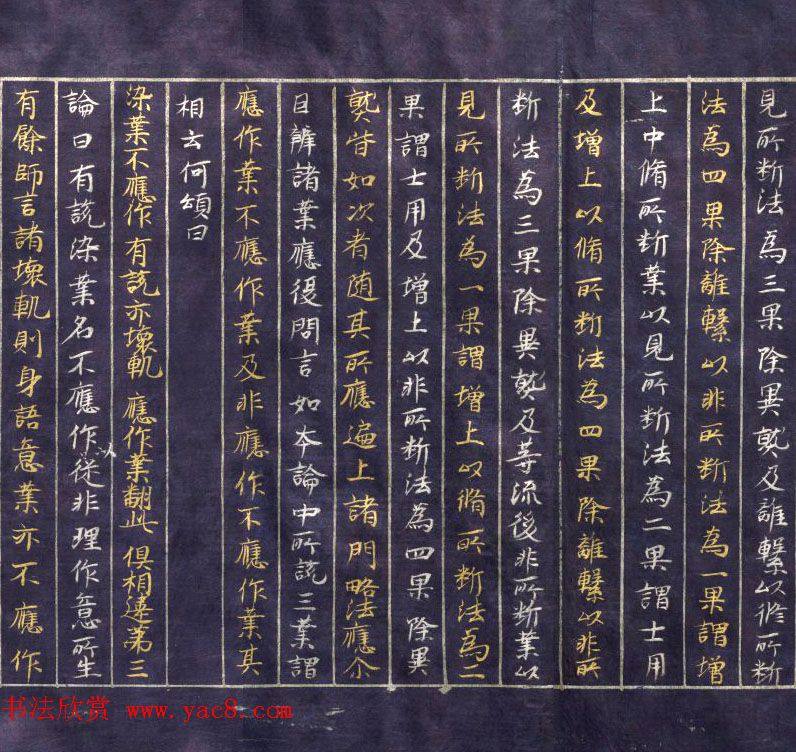 見所斷法為三果除異熟及離繫以脩所斷
法為四果除離繫以非所斷法為一果謂增
上中脩所斷業以見所斷法為二果謂士用
及增上以脩所斷法為四果除離繫以非所
斷法為三果除異熟及等流後非所斷業以
見所斷法為一果謂增上以脩所斷法為二
果謂士用及增上以非所斷法為四果除異
熟皆如次者随其所應遍上諸門略法應尒
因辯諸業應復問言如本論中所說三業謂
應作業不應作業及非應作不應作業其
相云何頌曰
染業不應作 有說亦壞軌 應作業翻此 俱相違第三
論曰有說染業名不應作以從非理作意所生
有餘師言諸壞軌則身語意業亦不應作
书法欣赏 www.yac8.com